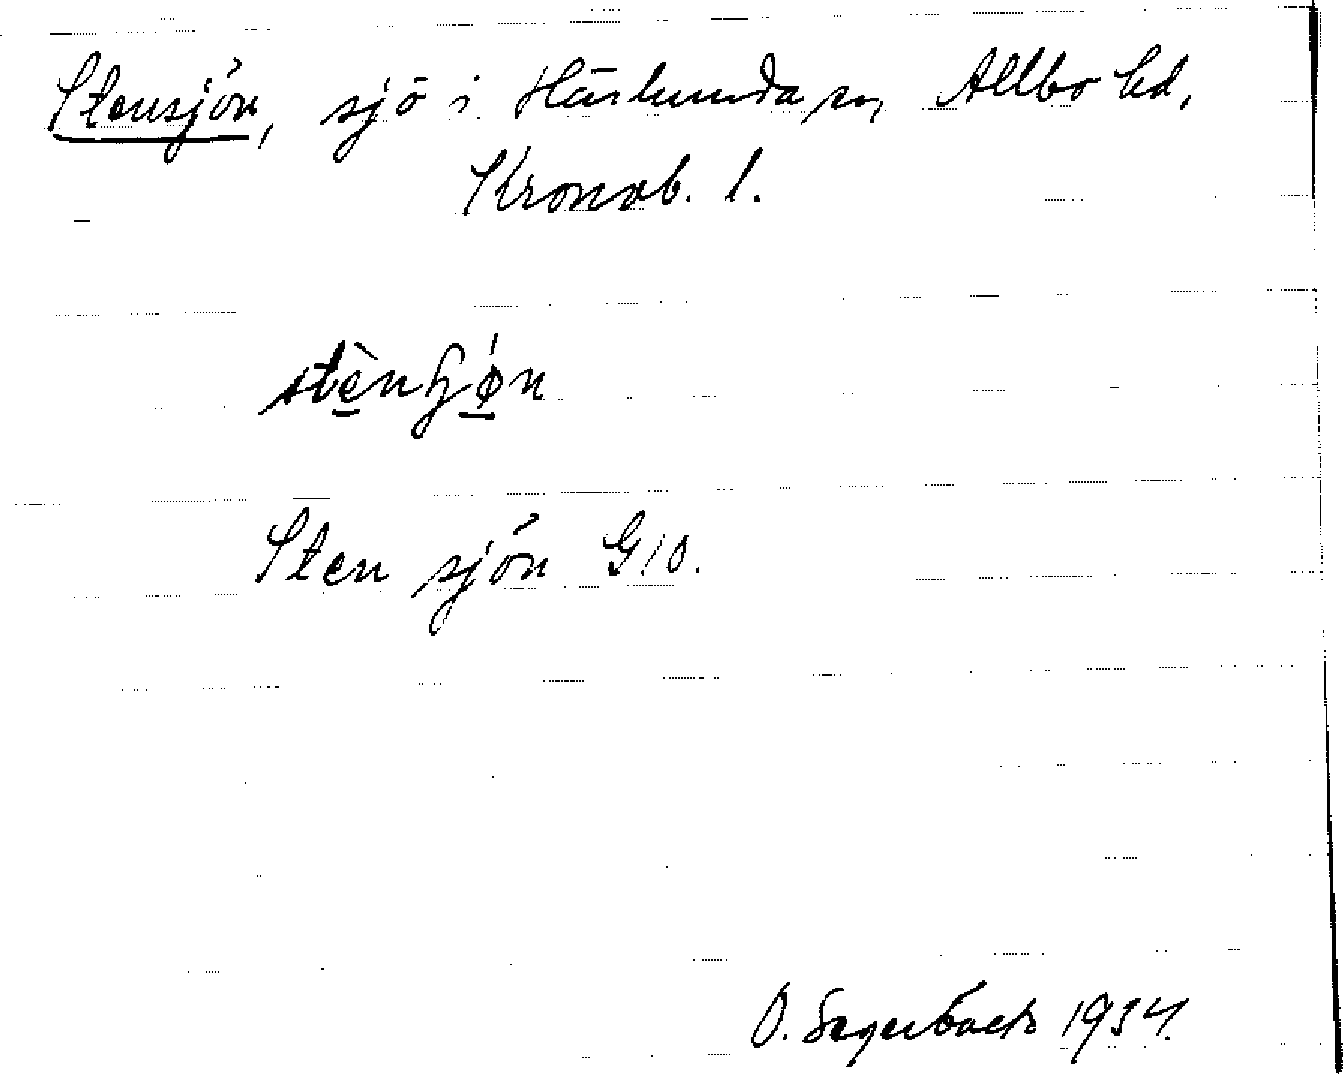 Stensjön, sjö i Härlunda sn, Allbo hd,
Kronob. l.
stènɧǿn
Sten sjön G10.
O. Segerbäck 1934.